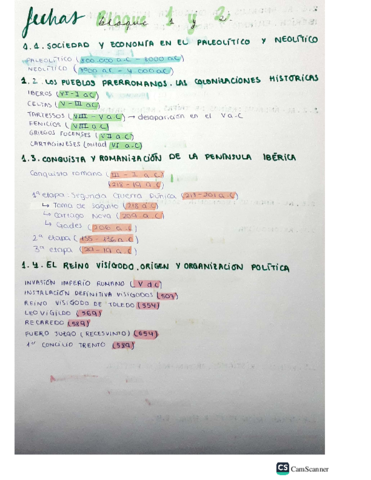 fechas Bloque 1 y 2.
1.1. SOCIEDAD Y ECONOMÍA EN EL PALEOLÍTICO Y NEOLÍTICO
PALEOLÍTICO (
NEOLÍTICO (
1.2. LOS PUEBLOS PRERROMANOS. LAS COLONIZACIONES HISTÓRICAS
IBEROS (VI - I a.C)
CELTAS (V - III a.C)
TARTESSOS (VIII - V a.C) → desaparición en el V a.C
FENICIOS (VIII a.C)
GRIEGOS FOCENSES (VI a.C)
CARTAGINESES (mitad VI a.C)
1.3. CONQUISTA Y ROMANIZACIÓN DE LA PENÍNSULA IBÉRICA
Conquista romana (III - I a.C)
(218 - 19 a.C)
1ª etapa: Segunda Guerra Púnica (218-
↳ Toma de Sagunto (218 a.C)
↳ Cartago Nova (209 a.C)
↳ Gades (206 a.C)
2ª etapa (
3ª etapa (29 - 19 a.C)
1.4. EL REINO VISIGODO, ORIGEN Y ORGANIZACIÓN POLÍTICA
INVASIÓN IMPERIO ROMANO (V d.C)
INSTALACIÓN DEFINITIVA VISIGODOS (507)
REINO VISIGODO DE TOLEDO (554)
LEOVIGILDO (569)
RECAREDO (589)
FUERO JUEGO (RECESVINTO) (654)
1er CONCILIO TRENTO (589)
CS CamScanner